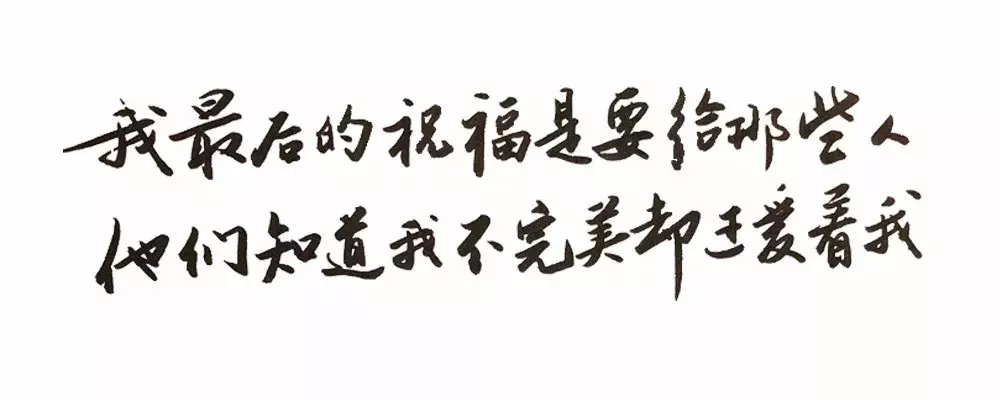 我最后的祝福是要给那些人
他们知道我不完美却还爱着我